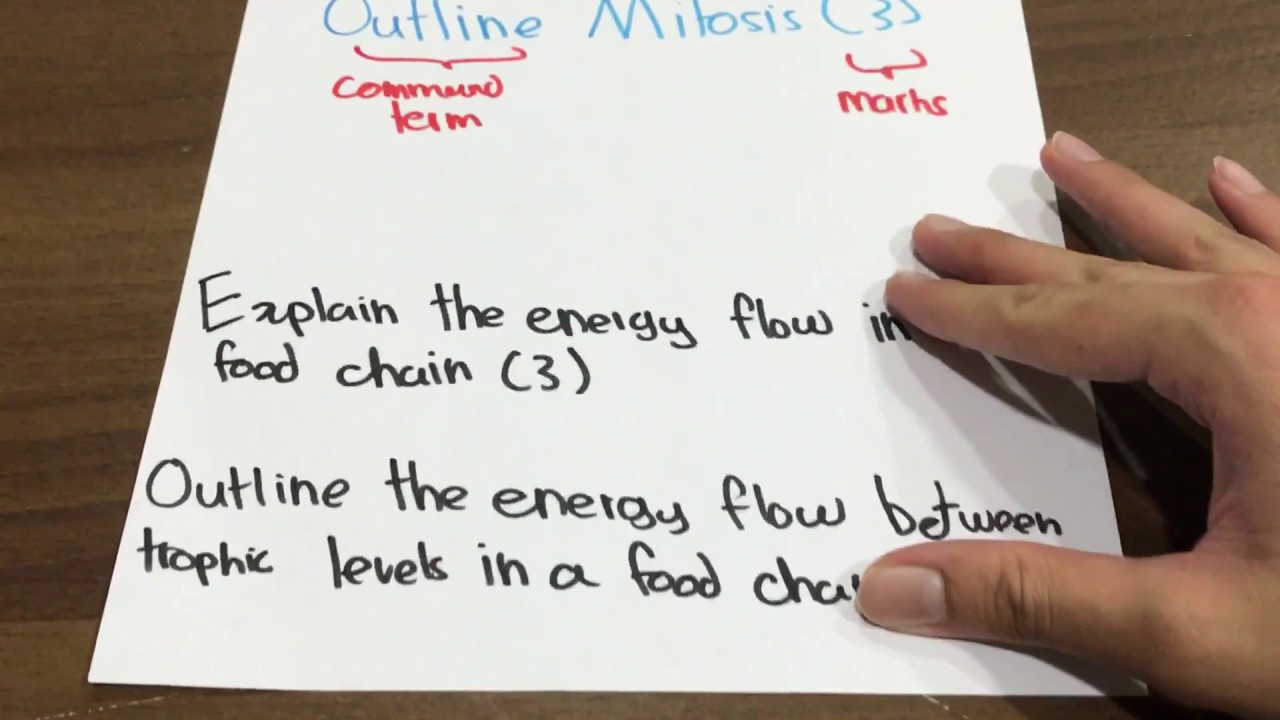 Outline Mitosis (3)
command
term
marks
Explain the energy flow in
food chain (3)
Outline the energy flow between
trophic levels in a food chai